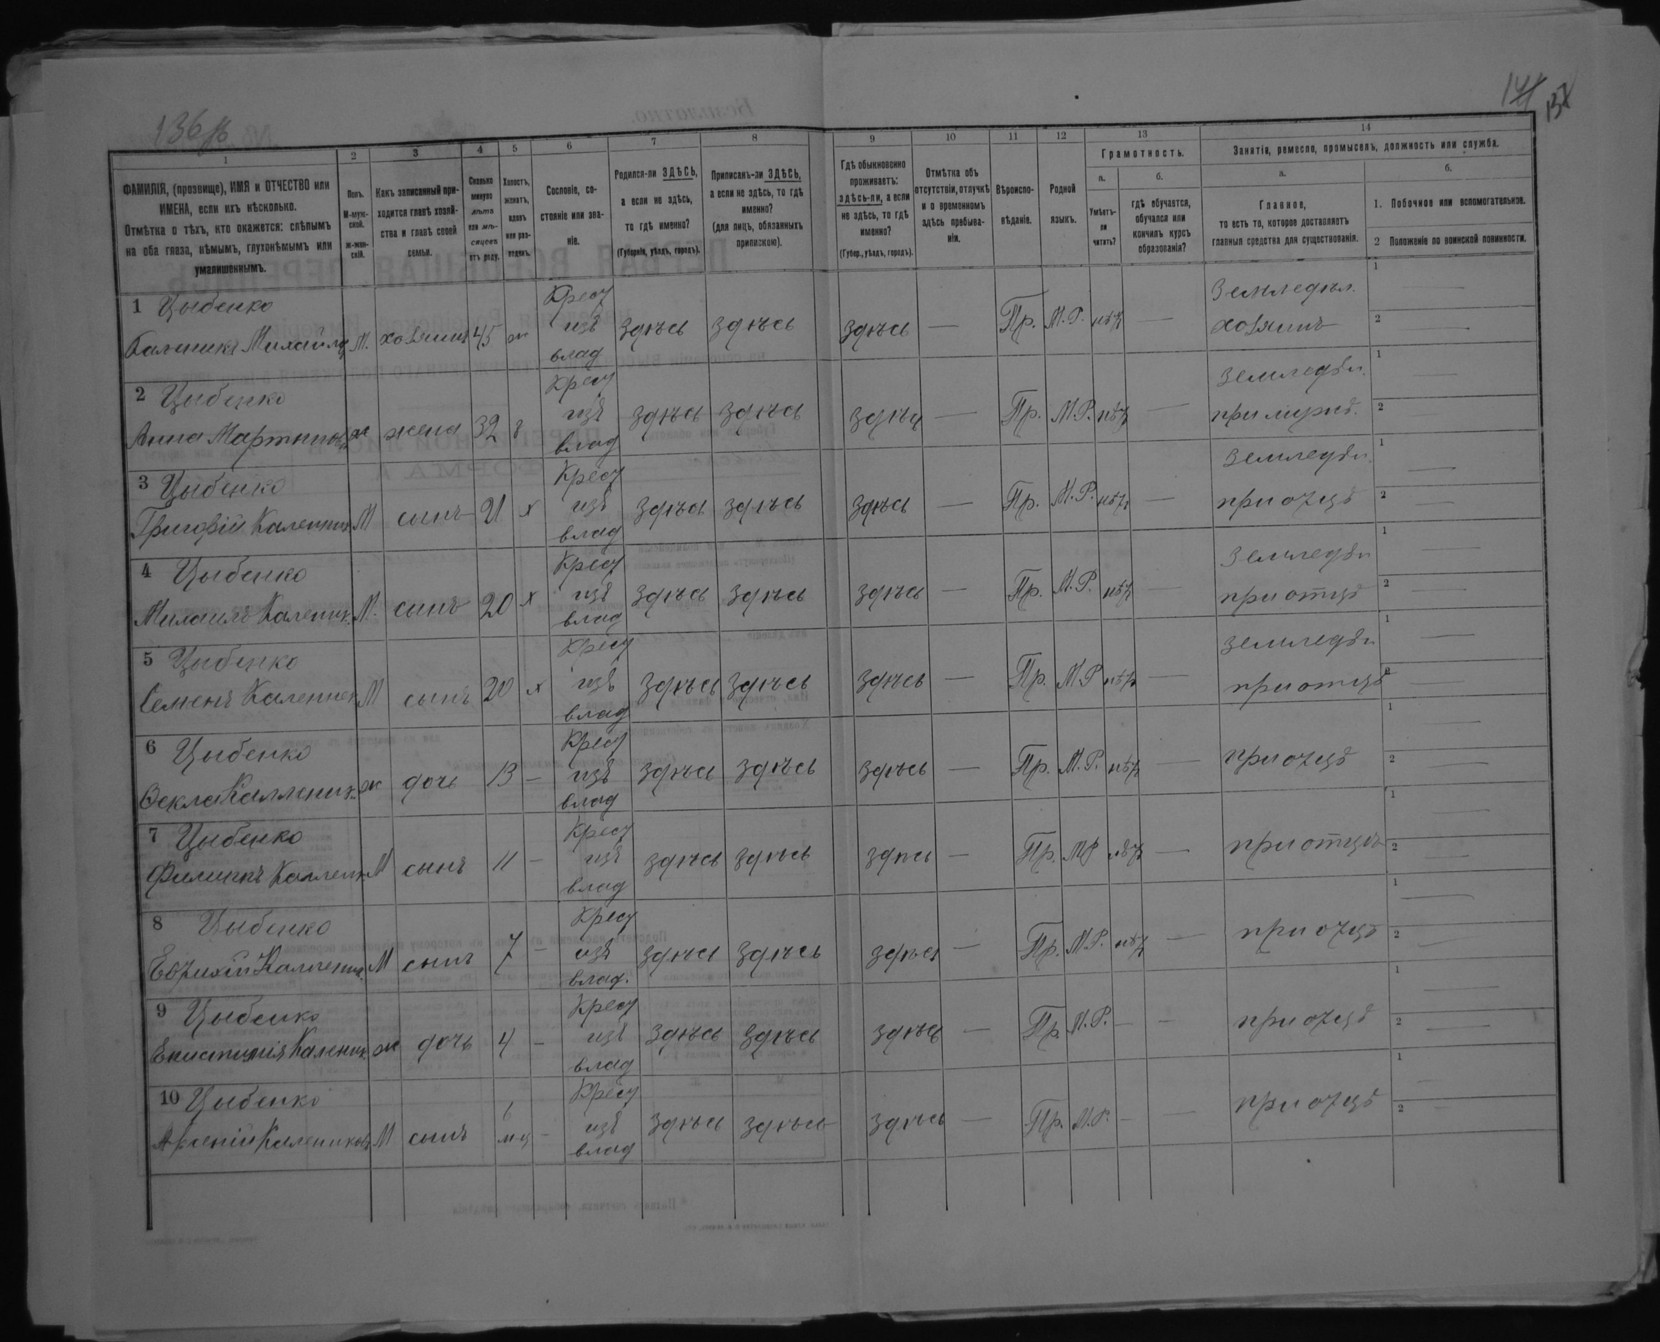 136 об
141
137
1 2 3 4 5 6 7 8 9 10 11 12 13 14
ФАМИЛІЯ, (прозвище), ИМЯ и ОТЧЕСТВО или ИМЕНА, если ихъ нѣсколько.
Отмѣтка о тѣхъ, кто окажется: слѣпымъ на оба глаза, нѣмымъ, глухонѣмымъ или умалишеннымъ.
Полъ.
М-мужской.
Ж-женскій.
Какъ записанный приходится главѣ хозяйства и главѣ своей семьи.
Сколько минуло лѣтъ или мѣсяцевъ отъ роду.
Холостъ, женатъ, вдовъ или разведенъ.
Сословіе, состояніе или званіе.
Родился-ли ЗДѢСЬ, а если не здѣсь, то гдѣ именно?
(Губернія, уѣздъ, городъ).
Приписанъ-ли ЗДѢСЬ, а если не здѣсь, то гдѣ именно?
(для лицъ, обязанныхъ припискою).
Гдѣ обыкновенно проживаетъ: здѣсь-ли, а если не здѣсь, то гдѣ именно?
(Губер., уѣздъ, городъ).
Отмѣтка объ отсутствіи, отлучкѣ и о временномъ здѣсь пребываніи.
Вѣроисповѣданіе.
Родной языкъ.
Грамотность.
а.
Умѣетъ-ли читать?
б.
гдѣ обучается, обучался или кончилъ курсъ образованія?
Занятіе, ремесло, промыселъ, должность или служба.
а.
Главное,
то есть то, которое доставляетъ главныя средства для существованія.
б.
1. Побочное или вспомогательное.
2 Положеніе по воинской повинности.
1 Цыбенко Крест Земледѣл. 1
Каленикъ Михайлов М. хозяинъ 45 ж изъ здѣсь здѣсь здѣсь — Пр. М.Р. нѣт — хозяинъ 2
влад
2 Цыбенко Крест Земледѣл. 1
Анна Мартинов ж жена 32 з изъ здѣсь здѣсь здѣсь — Пр. М.Р. нѣт — при мужѣ. 2
влад
3 Цыбенко Крест Земледѣл. 1
Григорій Каленик М сынъ 21 х изъ здѣсь здѣсь здѣсь — Пр. М.Р. нѣт — при отцѣ 2
влад
4 Цыбенко Крест Земледѣл 1
Михаилъ Каленик. М. сынъ 20 х изъ здѣсь здѣсь здѣсь — Пр. М.Р. нѣт — при отцѣ 2
влад
5 Цыбенко Крест Земледѣл 1
Семенъ Каленик М сынъ 20 х изъ здѣсь здѣсь здѣсь — Пр. М.Р нѣт — при отцѣ 2
влад
6 Цыбенко Крест 1
Ѳекла Каленик. ж дочь 13 — изъ здѣсь здѣсь здѣсь — Пр. М.Р. нѣт — при отцѣ 2
влад
7 Цыбенко Крест 1
Филиппъ Каленик М сынъ 11 — изъ здѣсь здѣсь здѣсь — Пр. МР нѣт — при отцѣ 2
влад
8 Цыбенко Крест 1
Евтихій Каленик М сынъ 7 — изъ здѣсь здѣсь здѣсь — Пр. М.Р. нѣт — при отцѣ 2
влад.
9 Цыбенко Крест 1
Каленик ж дочь 4 — изъ здѣсь здѣсь здѣсь — Пр М.Р. — — при отцѣ 2
влад
10 Цыбенко Крест 1
Арсеній Калеников М сынъ 1 мц — изъ здѣсь здѣсь здѣсь — Пр. М.Р. — — при отцѣ 2
влад